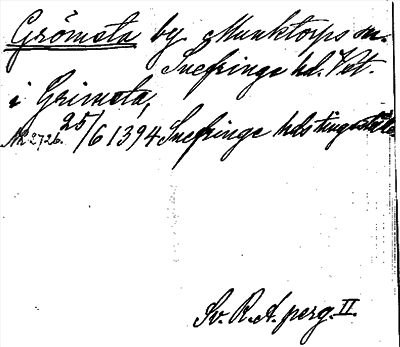 Grömsta by. Munktorps sn.
Snefringe hd. Vst.
i Grimsta,
N. 2726. 25/6 1394 Snefringe hds tingställe
Sv. R. A. perg. II.